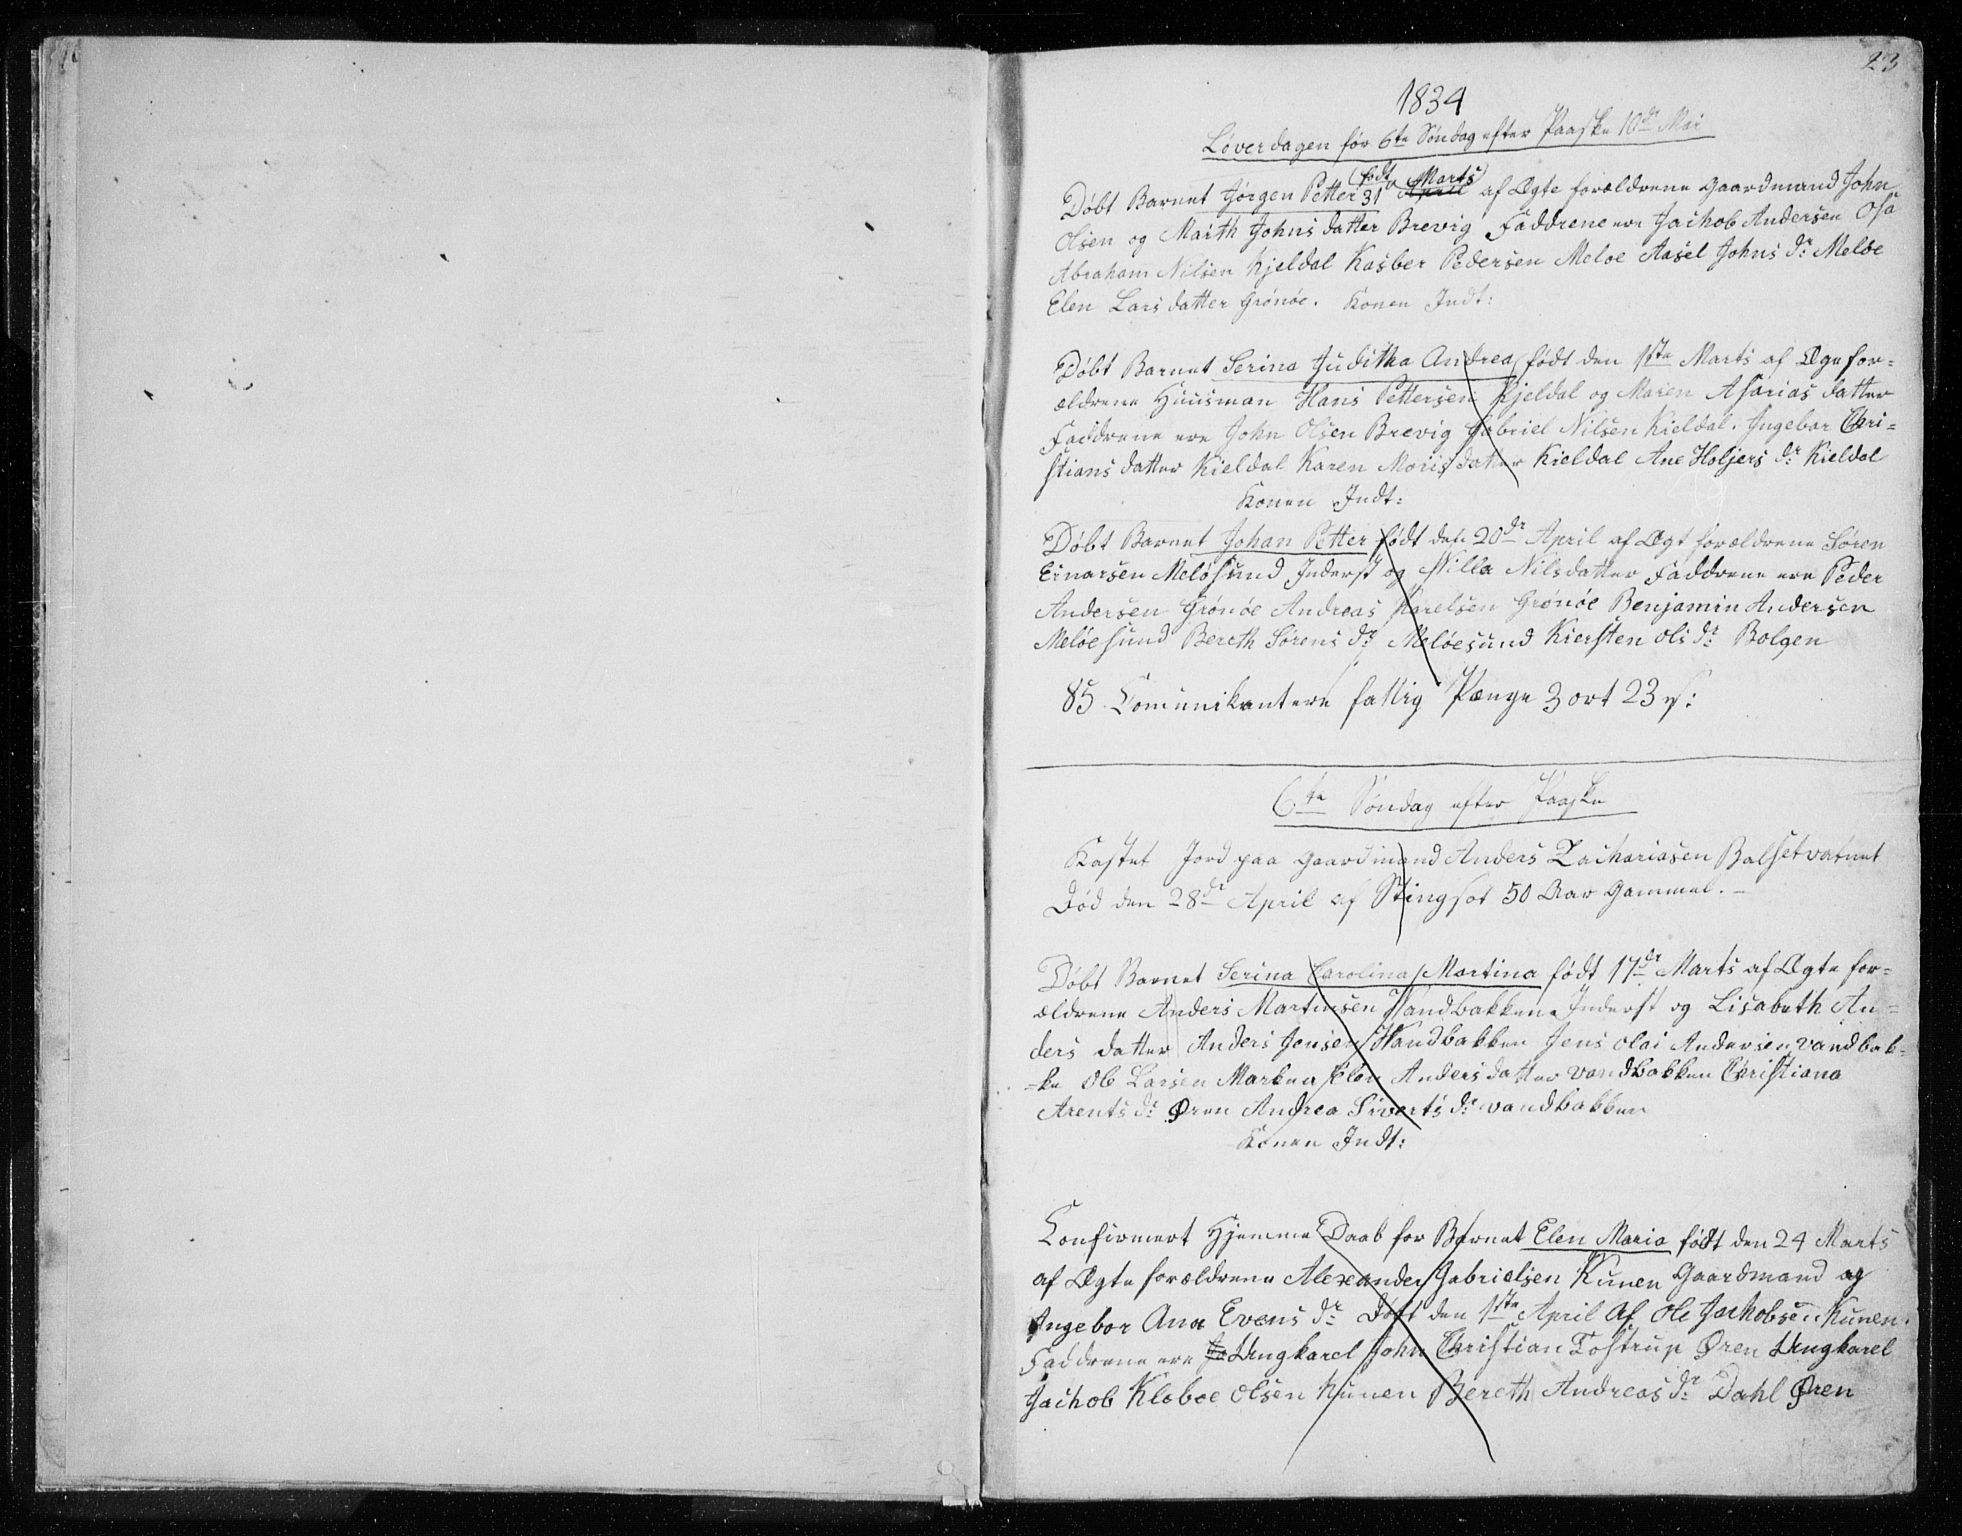 23
1834
Løverdagen før 6te Søndag efter Paaske 10de Mai
Døbt Barnet Jørgen Petter født 31 April Marts af Ægte forældrene Gaardmand John
Olsen og Marth Johnsdatter Brevig Faddrene ere Jachob Andersen
Abraham Nilsen Kjeldal Kasber Pedersen Meloe Aasel Johns dr Meløe
Elen Larsdatter Grønøe. Konen Indt:
Døbt Barnet Serina Juditha Andrea født den 1ste Marts af Ægefor=
ældrene Huusman Hans Pettersen Kjeldal og Maren Asarias datter
Faddrene ere John Olsen Brevig Gabriel Nilsen Kieldal. Ingebor Chri=
stians datter Kieldal Karen Moris datter Kieldal Ane Holjers dr Kieldal
Konen Indt:
Døbt Barnet Johan Petter født den 20de April af Ægt forældrene Søren
Einarsen Meløsund Inderst og Nilla Nilsdatter Faddrene ere Peder
Andersen Grønøe Andreas Karelsen Grønøe Benjamin Andersen
Meløesund Bereth Sørens dr Meløesund Kiersten Ols dr Bolgen
85 Comunikantere fattig Pænge 3 ort 23 s:
6te Søndag efter Paaske
Kastet Jord paa Gaardmand Anders Zachariasen Balsetvatnet
Død den 28de April af Stingsot 50 Aar Gammel. –
Døbt Barnet Serina Carolina Martina født 17de Marts af Ægte for=
ældrene Anders Martinsen Vandbakken Inderst og Lisabeth An=
ders datter Anders Jensen Vandbakken Jens Olai Andersen Vandbak=
=ke Ole Larsen Marken Elen Anders datter Vandbakken Christiana
Arents dr Øren Andrea Siverts dr Vandbakken
Konen Indt:
Confirmert Hjemme Daab for Barnet Elen Maria født den 24 Marts
af Ægte forældrene Alexander Gabrielsen Kunen Gaardmand og
Ingebor Ana Evens dr Døbt den 1ste April af Ole Jachobsen Kunen.
Faddrene ere Ungkarel John Christian Tostrup Øren Ungkarel
Jachob Kloboe Olsen Kunen Bereth Andreas dr Dahl Øren